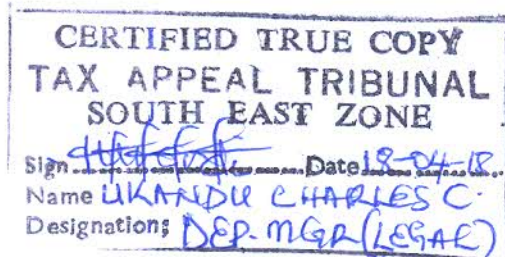 CERTIFIED TRUE COPY
TAX APPEAL TRIBUNAL
SOUTH EAST ZONE
Sign............Date 18-04-18
Name UKANDU CHARLES C.
Designation: DEP. MGR (LEGAL)